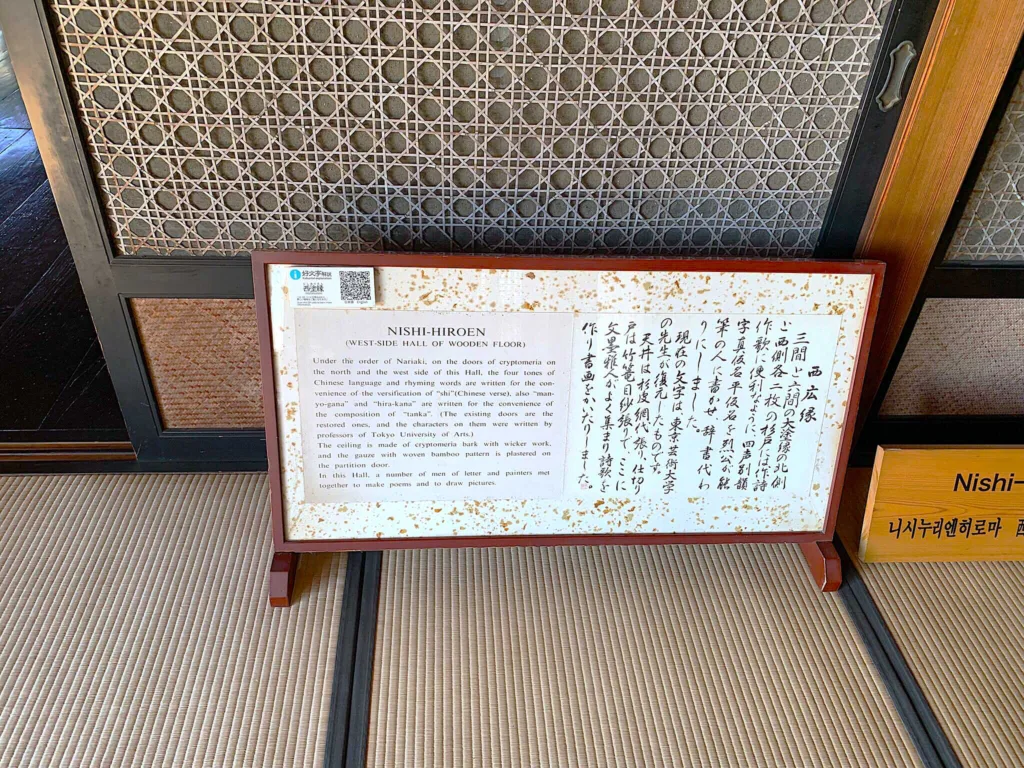 好文亭
西塗縁
NISHI-HIROEN
(WEST-SIDE HALL OF WOODEN FLOOR)
Under the order of Nariaki, on the doors of cryptomeria on
the north and the west side of this Hall, the four tones of
Chinese language and rhyming words are written for the con-
venience of the versification of "shi"(Chinese verse), also "man-
yo-gana" and "hira-kana" are written for the convenience of
the composition of "tanka". (The existing doors are the
restored ones, and the characters on them were written by
professors of Tokyo University of Arts.)
The ceiling is made of cryptomeria bark with wicker work,
and the gauze with woven bamboo pattern is plastered on
the partition door.
In this Hall, a number of men of letter and painters met
together to make poems and to draw pictures.
西広縁
三間と三間の大塗縁の北側
と西側各二枚の杉戸には作詩
作歌に便利なように、四声別韻
字真仮名平仮名を烈公が能
筆の人に書かせ 辞書代わ
りにしました。
現在の文字は、東京芸術大学
の先生が復元したものです。
天井は杉皮網代張り、仕切り
戸は竹篭目紗張りで、ここに
文墨雅人がよく集まり、詩歌を
作り書画をかいたりしました。
Nishi-
니시누리엔히로마